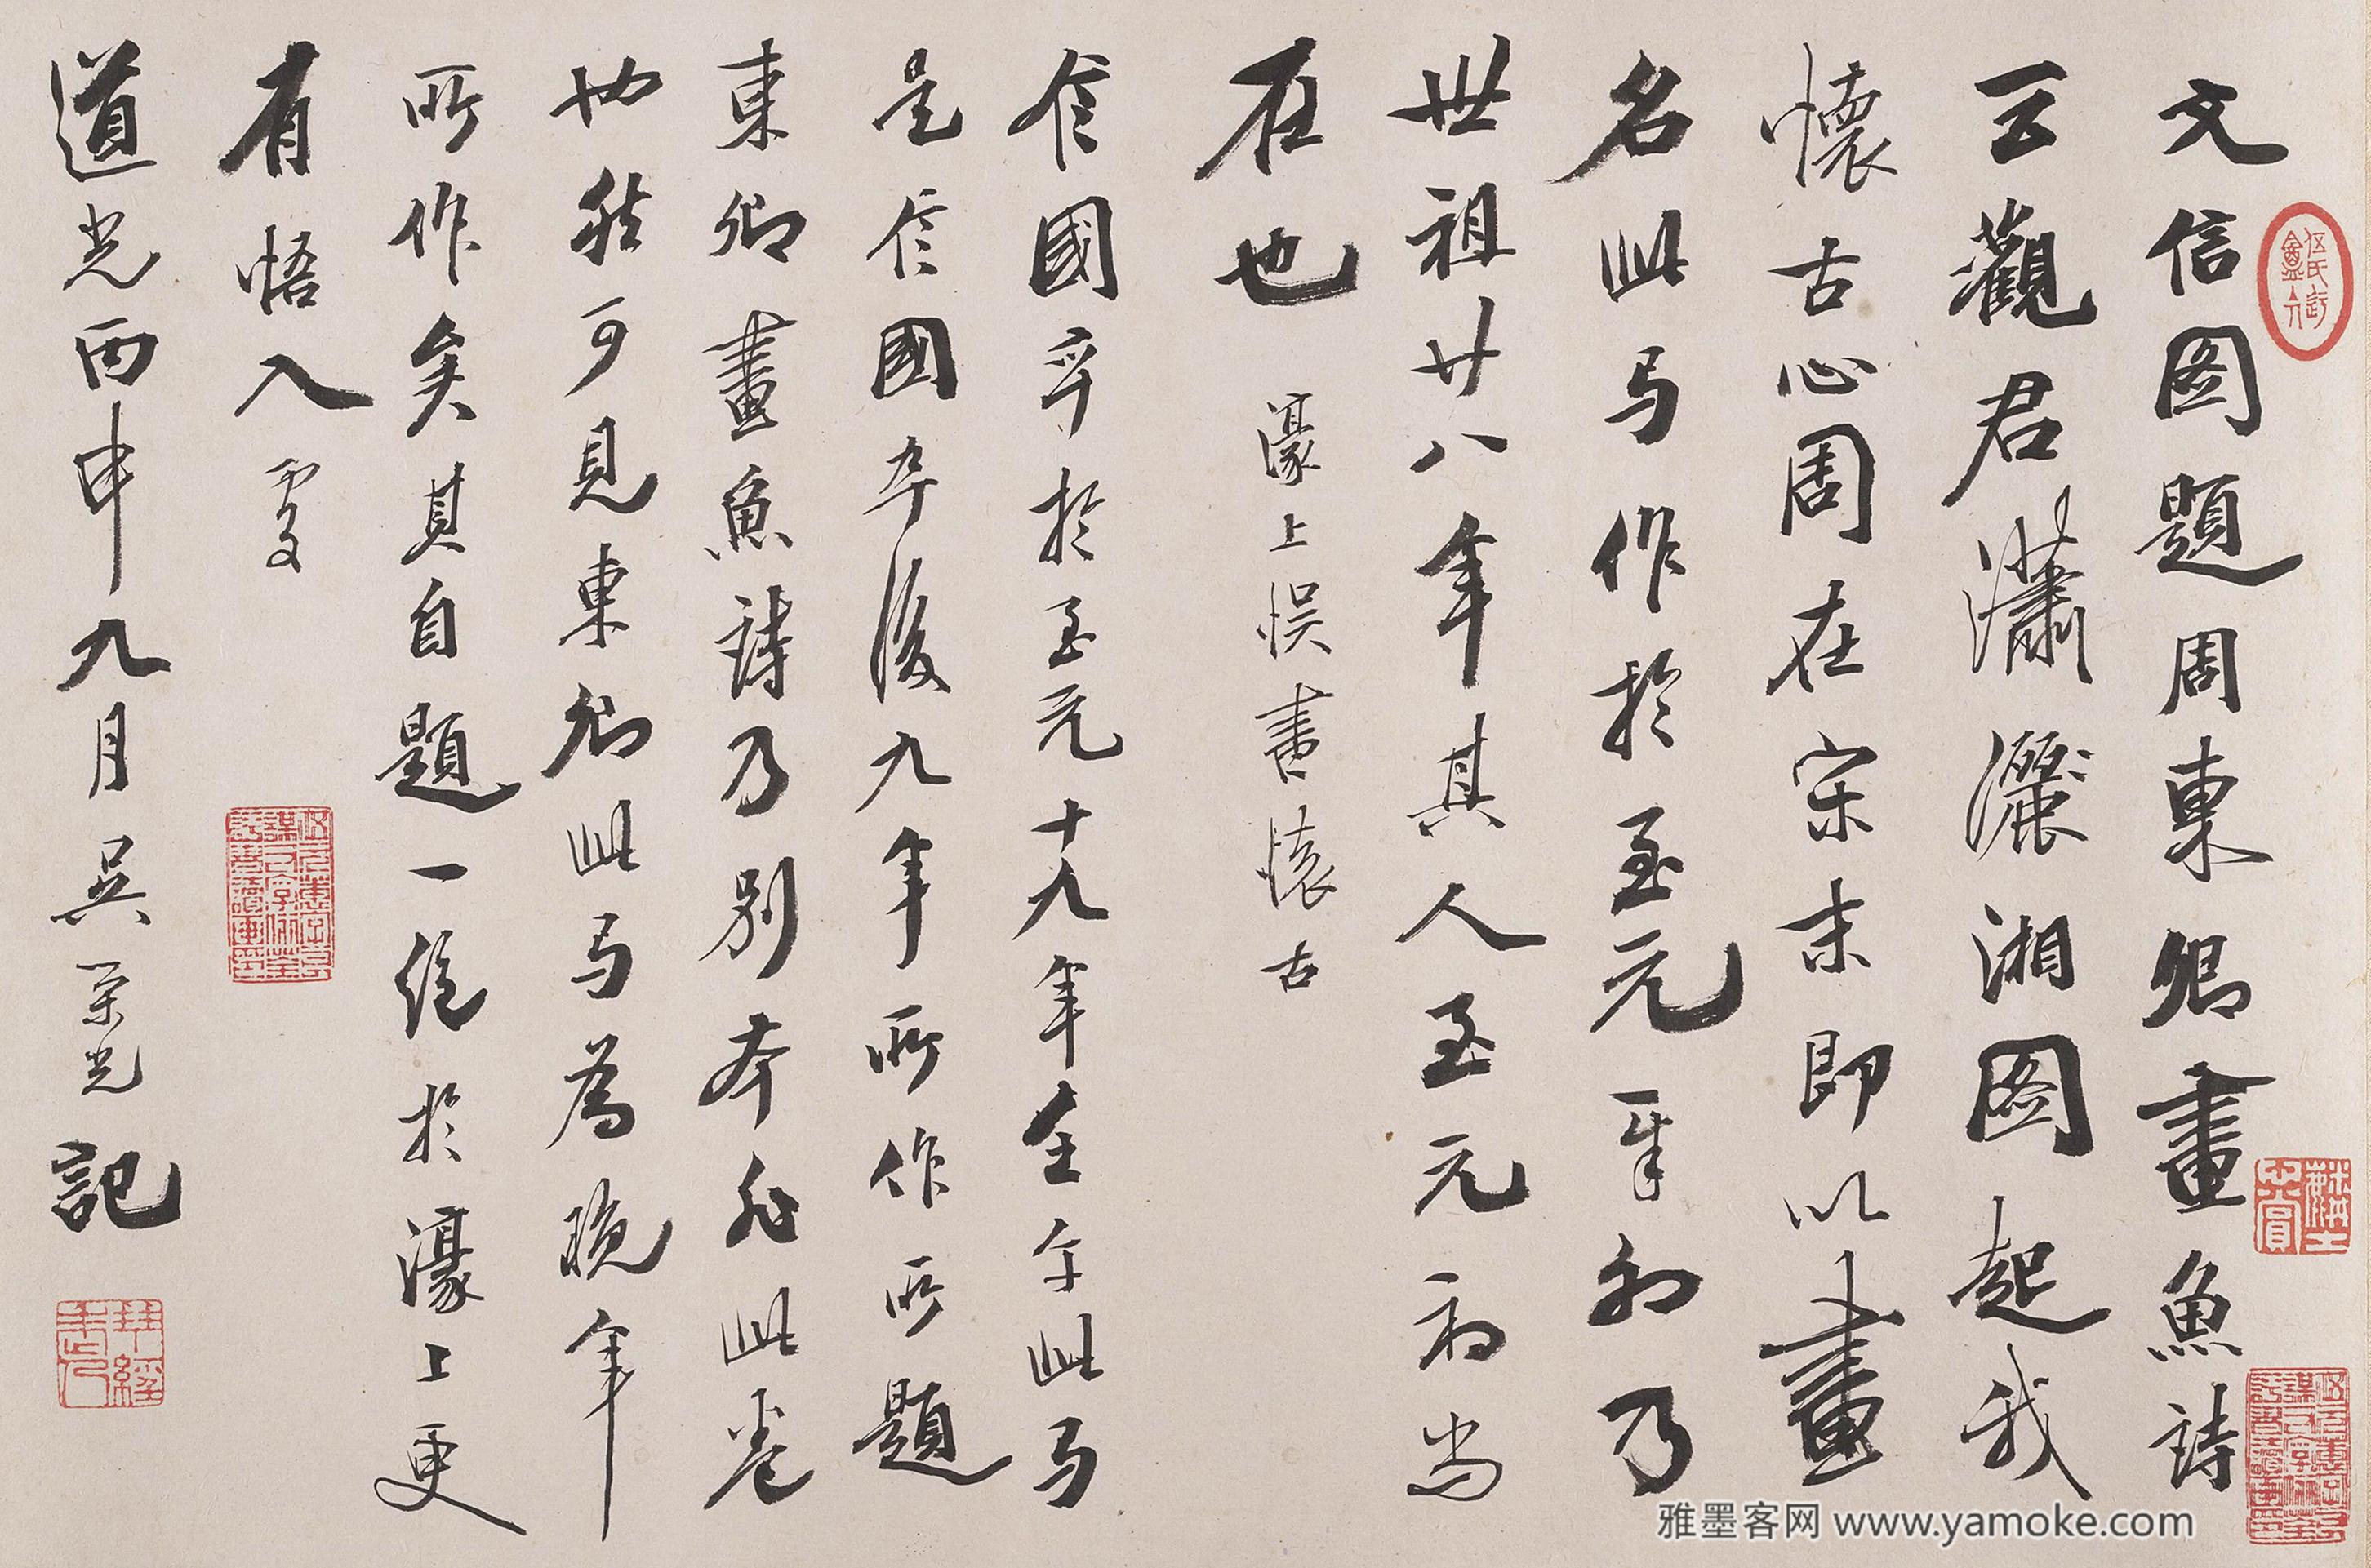 文信图題周東卿畫魚詩
云觀君瀟灑湘图起我
懷古心周在宋末即以畫
名此弓作於至元辛卯乃
世祖廿八年其人至元初尚
在也 濠上悮書懷古
信國卒於至元十九年壬午此弓
是信國卒後九年所作所題
東卿畫魚詩乃別本非此卷
也然可見東卿此弓為晚年
所作矣其自題一絕於濠上更
有悟入處
道光丙申九月吳榮光記
雅墨客网 www.yamoke.com